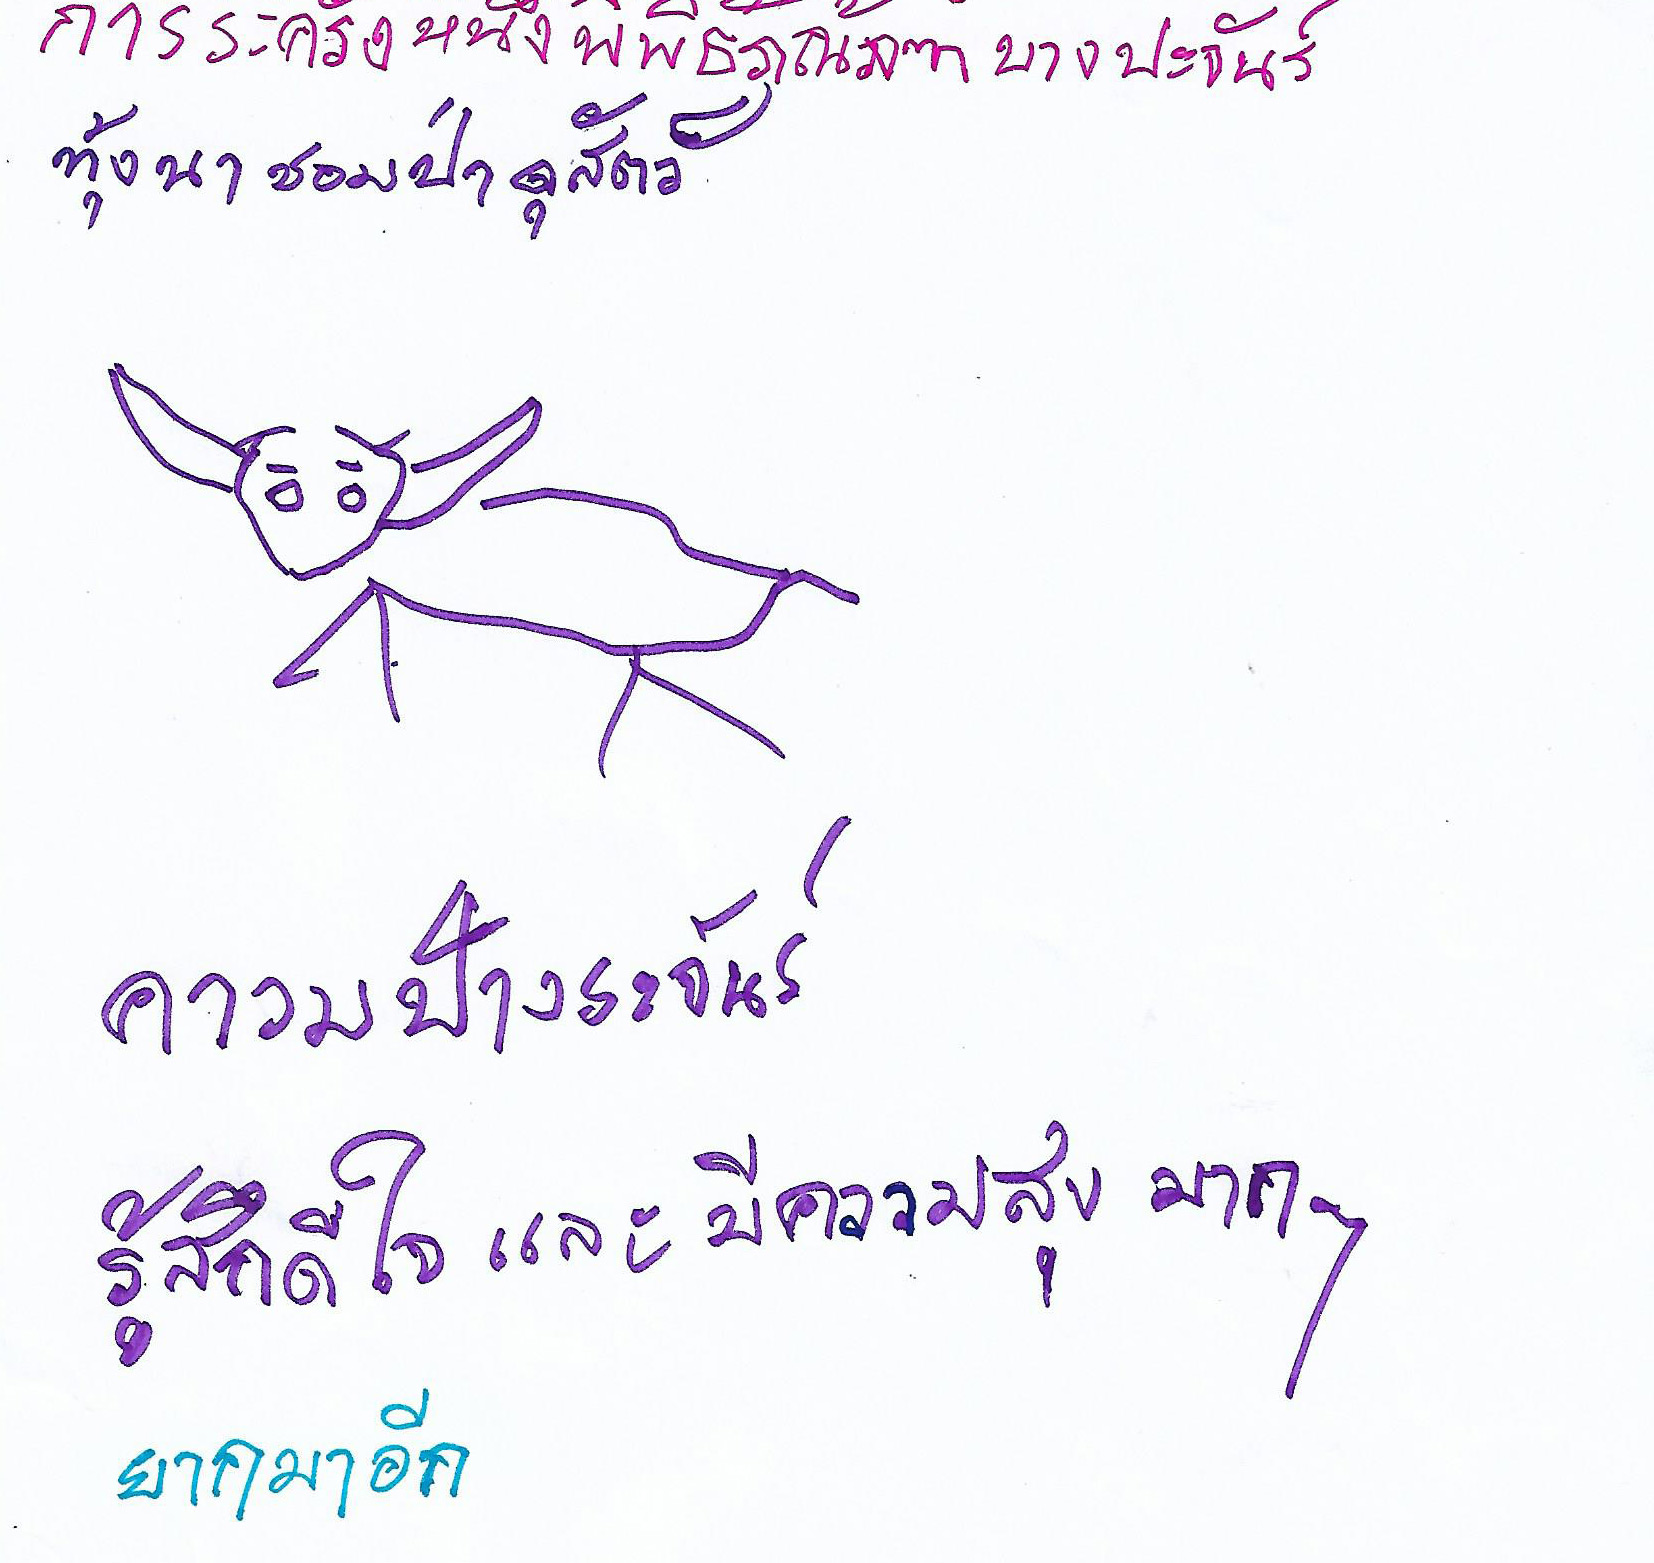 การระครั้งหนึ่งพิพิธภัณ บางปะจันร์
ทุ้งนา ชอมป่า ดูสัตว์
ควาวมป้างระจันร์
รู้สึกดีใจ และ มีความสุข มากๆ
ยากมาอีก